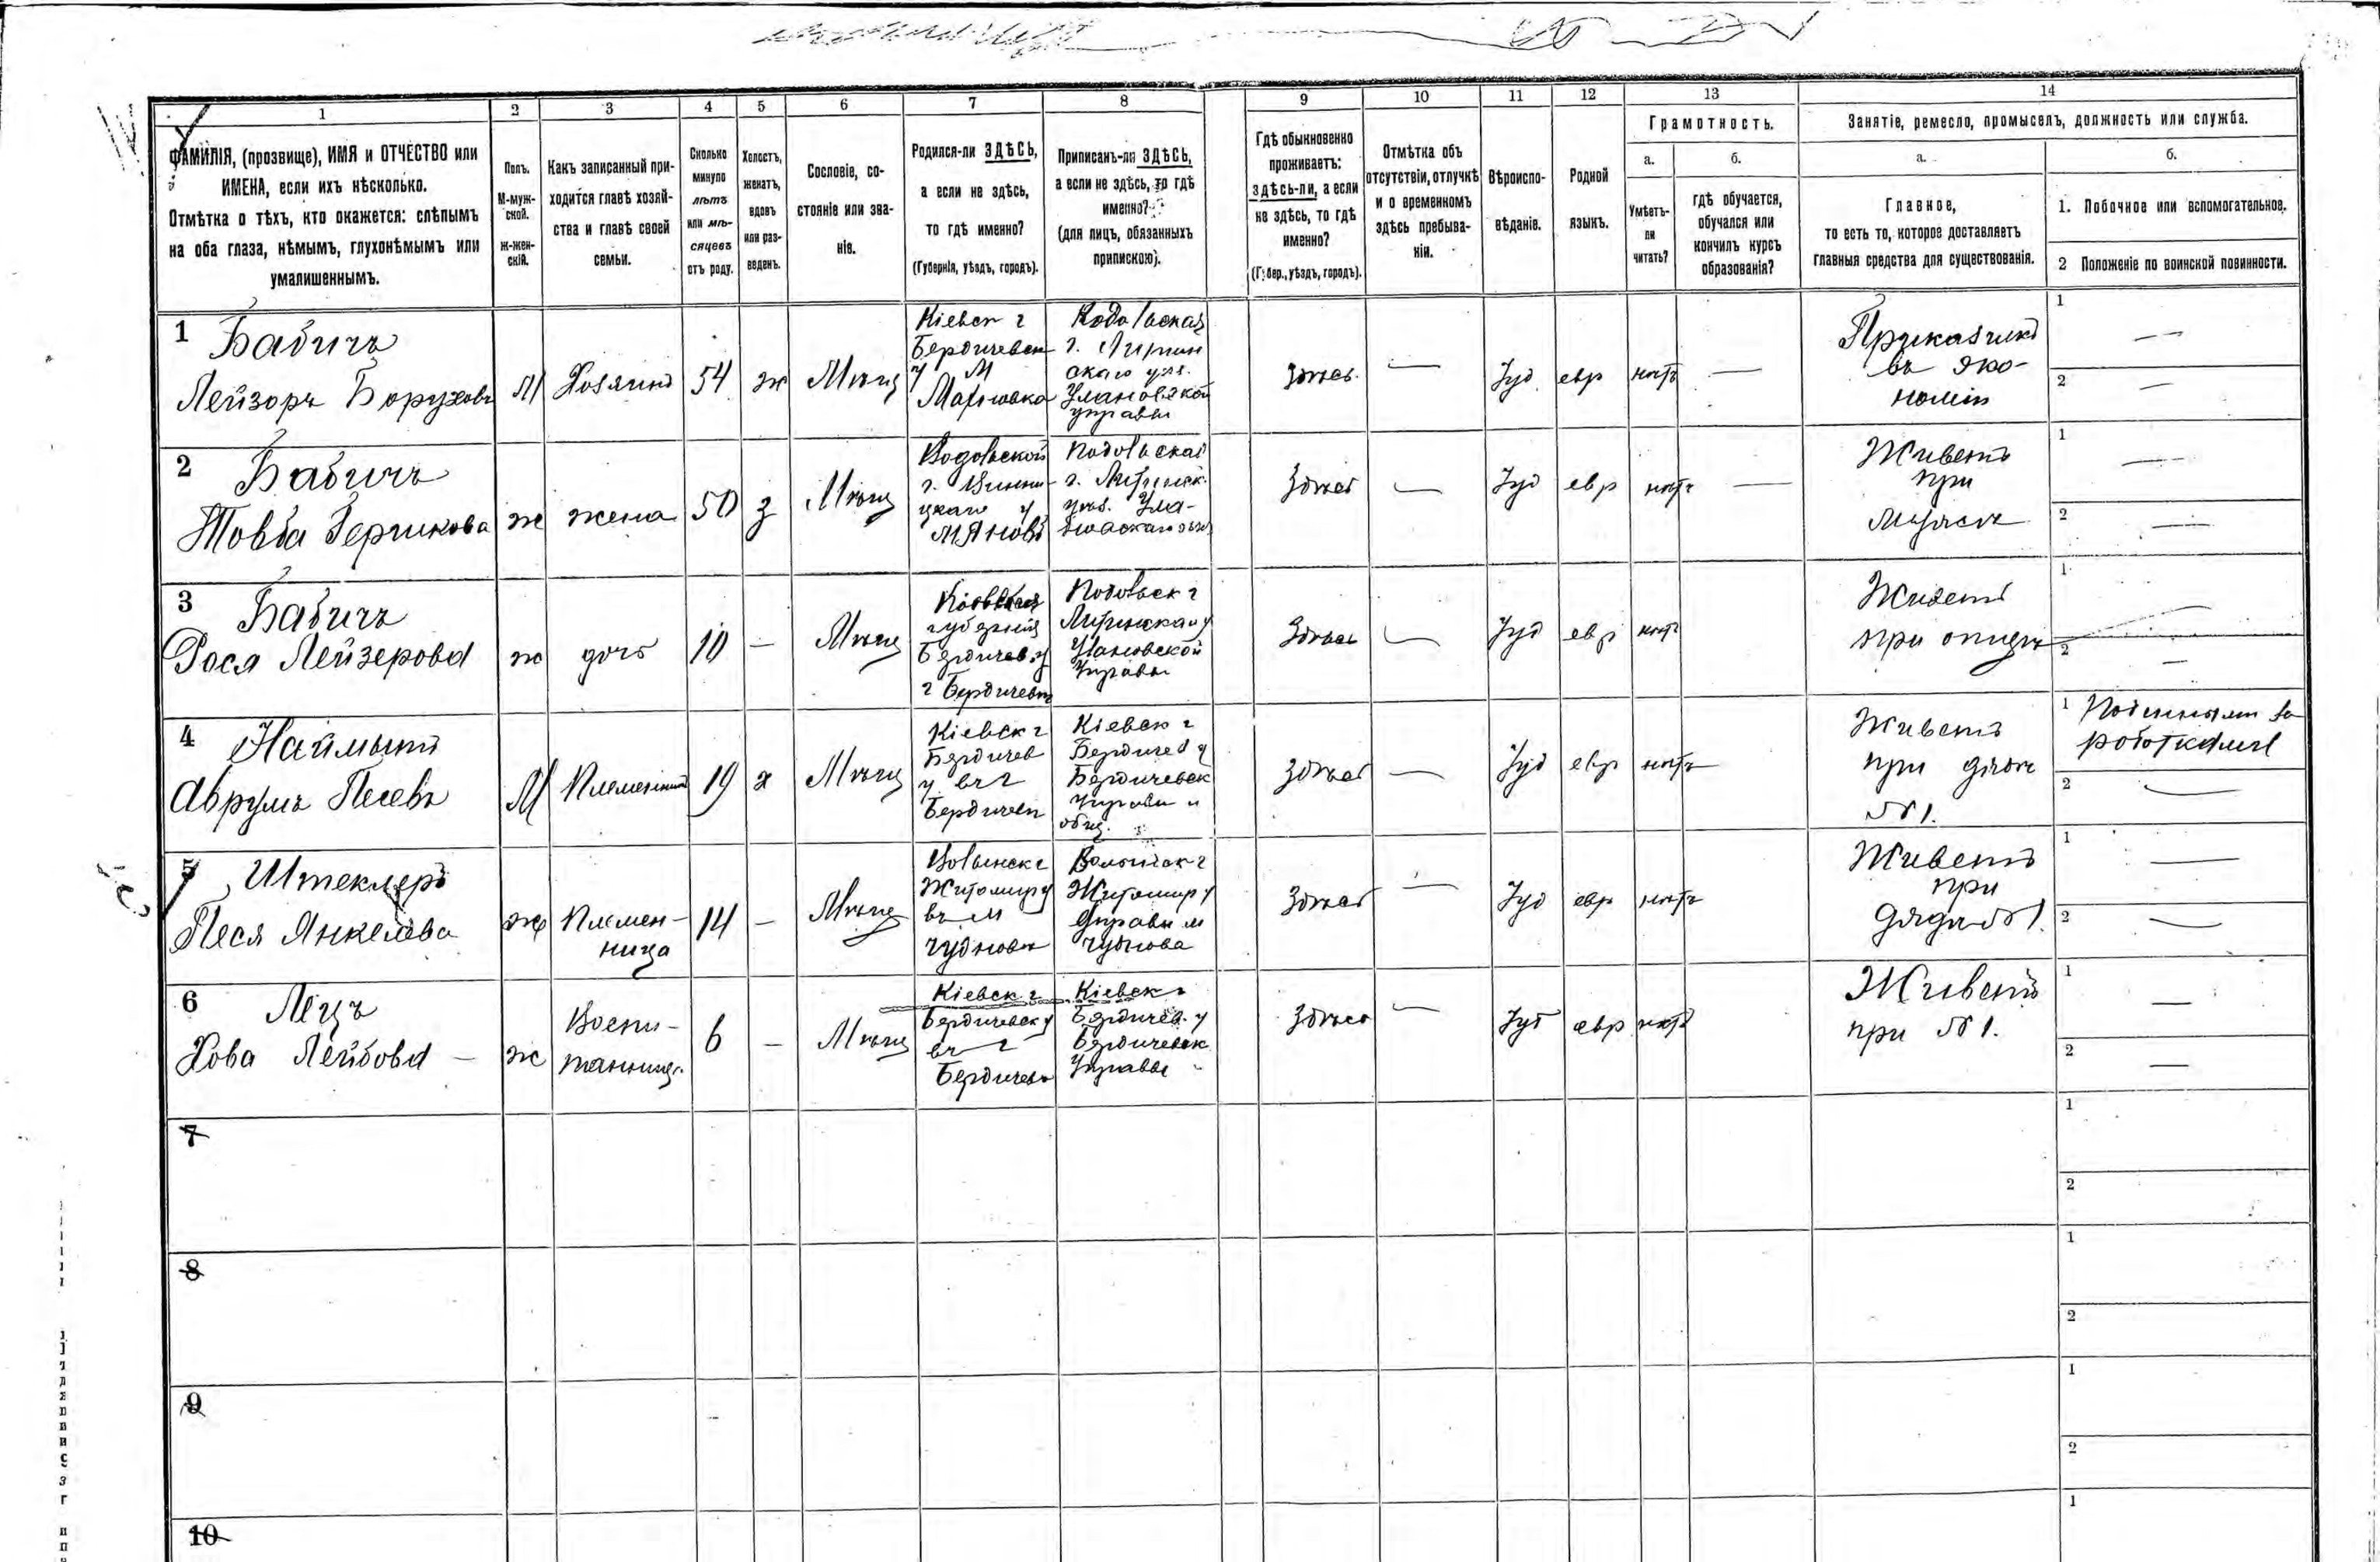 1
2
3
4
5
6
7
8
9
10
11
12
13
14
ФАМИЛІЯ, (прозвище), ИМЯ и ОТЧЕСТВО или
ИМЕНА, если ихъ нѣсколько.
Отмѣтка о тѣхъ, кто окажется: слѣпымъ
на оба глаза, нѣмымъ, глухонѣмымъ или
умалишеннымъ.
Полъ.
М-муж-
ской.
Ж-жен-
скій.
Какъ записанный при-
ходится главѣ хозяй-
ства и главѣ своей
семьи.
Сколько
минуло
лѣтъ
или мѣ-
сяцевъ
отъ роду.
Холостъ,
женатъ,
вдовъ
или раз-
веденъ.
Сословіе, со-
стояніе или зва-
ніе.
Родился-ли ЗДѢСЬ,
а если не здѣсь,
то гдѣ именно?
(Губернія, уѣздъ, городъ).
Приписанъ-ли ЗДѢСЬ,
а если не здѣсь, то гдѣ
именно?
(для лицъ, обязанныхъ
припискою).
Гдѣ обыкновенно
проживаетъ:
здѣсь-ли, а если
не здѣсь, то гдѣ
именно?
(Губер., уѣздъ, городъ).
Отмѣтка объ
отсутствіи, отлучкѣ
и о временномъ
здѣсь пребыва-
ніи.
Вѣроиспо-
вѣданіе.
Родной
языкъ.
Грамотность.
а.
Умѣетъ-
ли
читать?
б.
гдѣ обучается,
обучался или
кончилъ курсъ
образованія?
Занятіе, ремесло, промыселъ, должность или служба.
а.
Главное,
то есть то, которое доставляетъ
главныя средства для существованія.
б.
1. Побочное или вспомогательное.
2 Положеніе по воинской повинности.
1 Бабичъ
Лейзоръ Боруховъ
М
Хозяинъ
54
ж
Мѣщ
Кіевск г
Бердичевск
у М
Махновка
Подольская
г. Литин
скаго уѣз.
Улановской
управы
здѣсь
—
Іуд
евр
нѣтъ
—
Прикащикъ
въ эко-
номіи
1 —
2 —
2 Бабичъ
Товба Гершкова
ж
жена
50
з
Мѣщ
Подольской
г. Винни-
цкаго у
м Яновъ
Подольская
г. Литинск.
уѣз. Ула-
Здѣсь
—
Іуд
евр
нѣтъ
—
Живетъ
при
мужѣ
1 —
2 —
3 Бабичъ
Рося Лейзерова
ж
дочь
10
—
Мѣщ
Кіевская
губернія
Бердичев. у
г Бердичевъ
Подольск г
Литинскаго у
Улановской
Управы
Здѣсь
—
Іуд
евр
нѣтъ
Живетъ
при отцѣ
1
2 —
4 Наймытъ
Аврумъ Песевъ
М
Племянникъ
19
х
Мѣщ
Кіевск г
Бердичев
у въ г
Бердичевъ
Кіевск г
Бердичев у
Бердичевск
Управы и
общ.
Здѣсь
—
Іуд
евр
нѣтъ
Живетъ
при дядѣ
№ 1.
1 Поденными за
роботками
2 —
5 Штеклеръ
Песя Янкелева
ж
Племен-
ница
14
—
Мѣщ
Волынск г
Житомир у
въ м
Чудновѣ
Волынск г
Житомир у
Управы м
Чуднова
Здѣсь
—
Іуд
евр
нѣтъ
Живетъ
при
дядѣ № 1.
1 —
2 —
6 Лецъ
Хова Лейбова —
ж
Воспи-
танница
6
—
Мѣщ
Кіевск г
Бердичевск у
въ г
Бердичевѣ
Кіевск г
Бердичев. у
Бердичевск
Управы
Здѣсь
—
Іуд
евр
нѣтъ
Живетъ
при № 1.
1 —
2 —
7
1
2
8
1
2
9
1
2
10
1